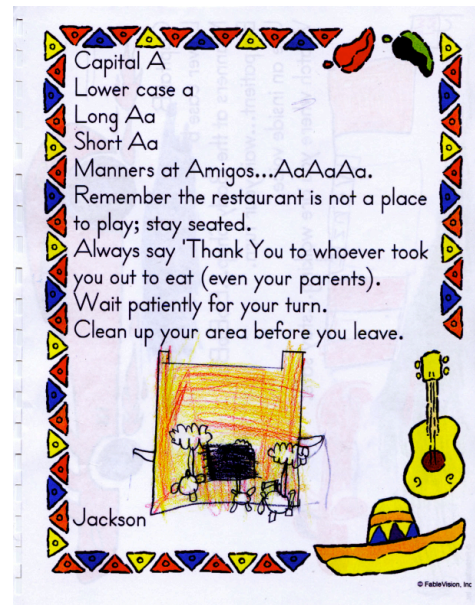 Capital A
Lower case a
Long Aa
Short Aa
Manners at Amigos...AaAaAa.
Remember the restaurant is not a place
to play; stay seated.
Always say 'Thank You to whoever took
you out to eat (even your parents).
Wait patiently for your turn.
Clean up your area before you leave.
Jackson
© FableVision, Inc